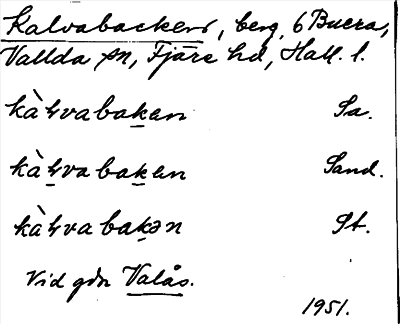 Kalvabacken, berg, 6 Buera,
Vallda sn, Fjäre hd, Hall. l.
kàɬvabaken Sa.
kàɬvabaken Sand.
kàɬvabakən St.
Vid gdn Valås.
1951.